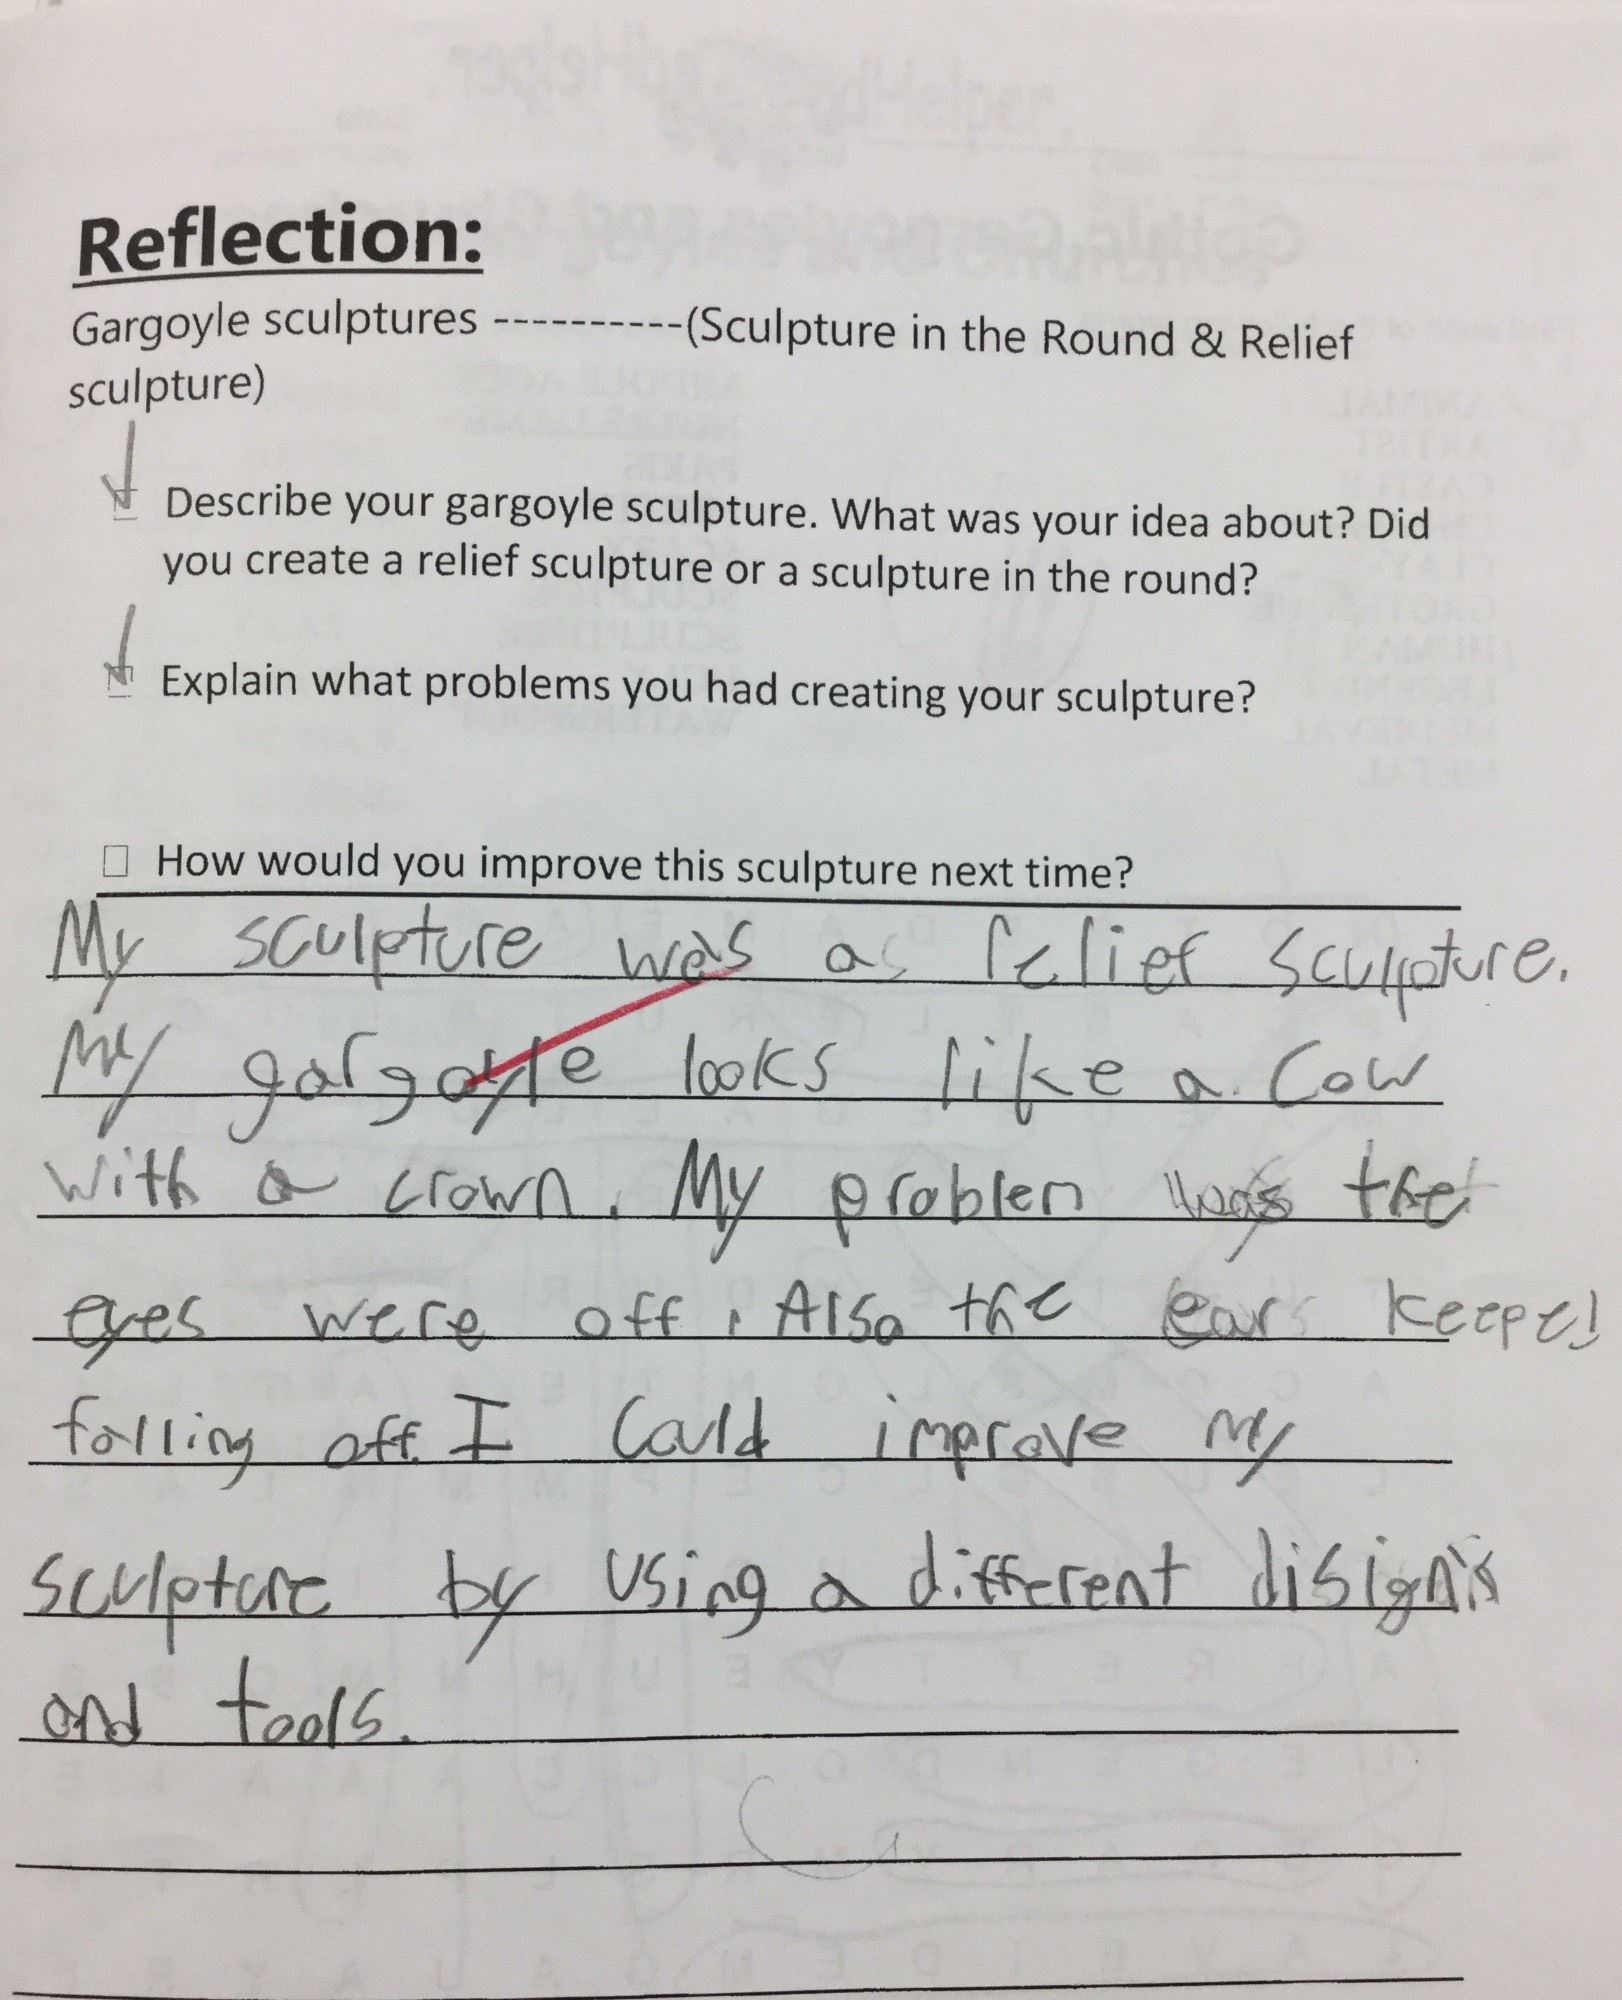 Reflection:
Gargoyle sculptures ----------(Sculpture in the Round & Relief
sculpture)
Describe your gargoyle sculpture. What was your idea about? Did
you create a relief sculpture or a sculpture in the round?
Explain what problems you had creating your sculpture?
How would you improve this sculpture next time?
My sculpture was a relief sculpture.
My gargoyle looks like a cow
with a crown. My problem was the
eyes were off. Also the ears keeped
falling off. I could improve my
sculpture by using a different disign's
and tools.